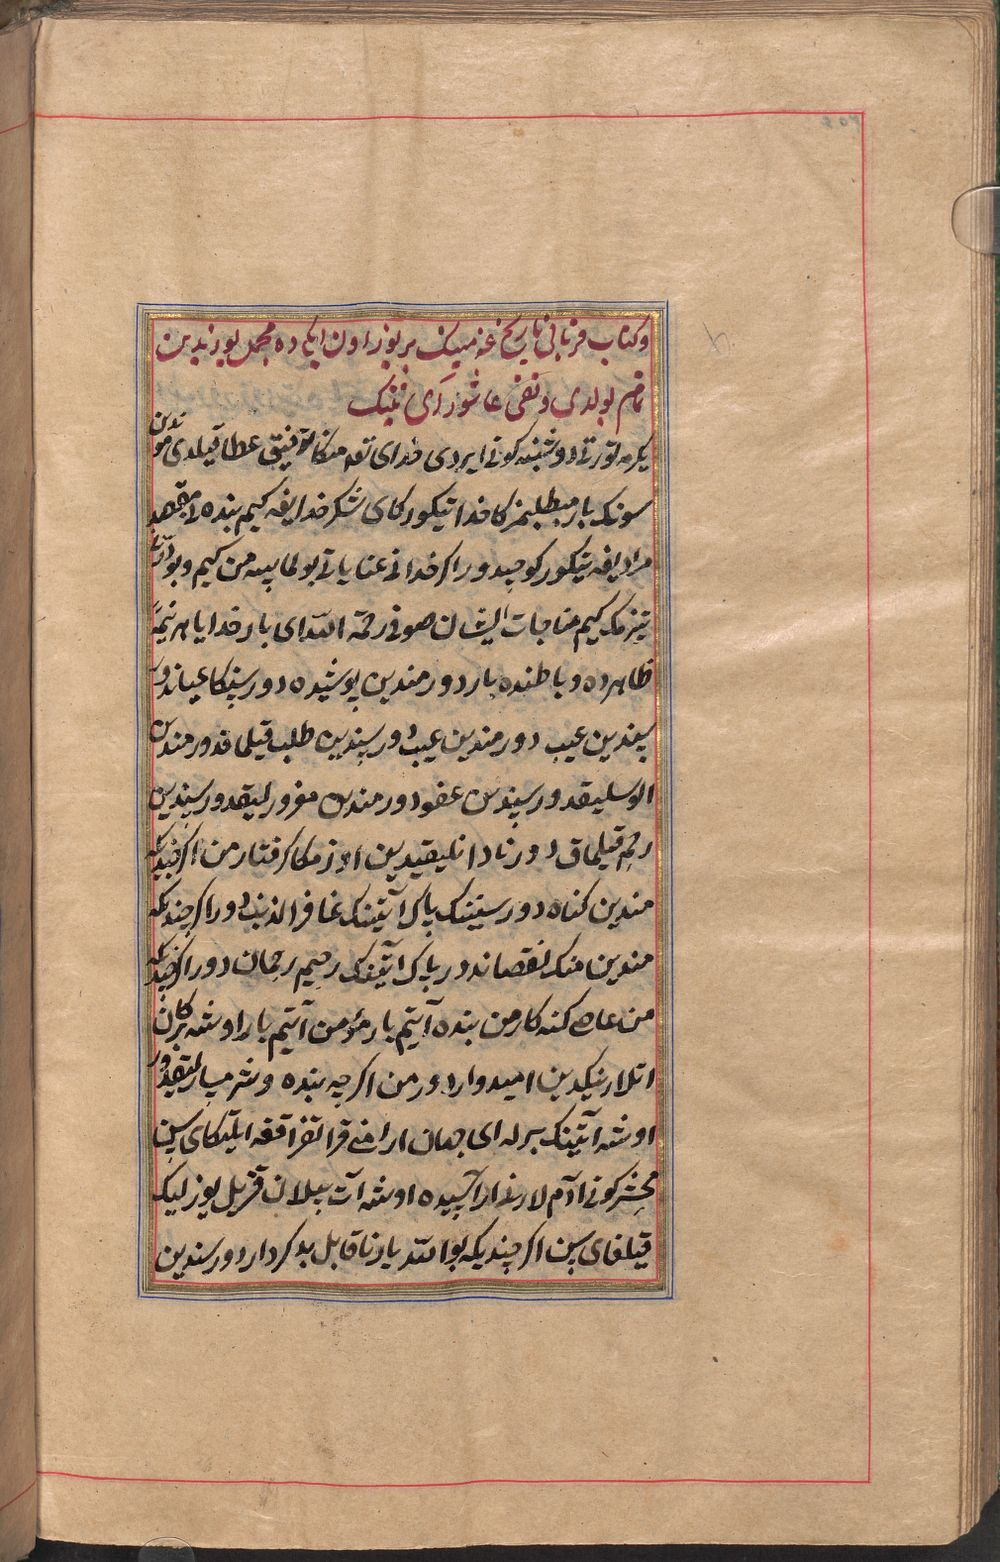 وکتاب قربانی تاریخ غه مینک بر یوز اون ایکی ده محمد یوزیدین
تمام بولدی و نفی عاشورآی نینک
یکرمه تورتی دوشنبه کونی ایردی خدای تعه منکا توفیق عطا قیلدی موندین
سونک بار مطلبمزکا خدا تیکورکای شکر خدایغه کیم بنده لار مقصد
مرادیغه تیکورکوچیدور اکر خدانی عنایاتی بولماسه من کیم و بو
تیزمک کیم مناجات ایشان صوفی رحمة الله ای بار خدایا هر نیمه
ظاهرده و باطنده بار دور مندین پوشیده دور سینکا عیاندور
سیندین غیب دور مندین عیب دور سیندین طلب قیلماقدور مندین
الوسلیقدور سیندین عفو دور مندین مغرورلیقدور سیندین
رحم قیلماق دور نادانلیقیدین اوزمکا کرفتار من اکر چندیکه
مندین کناه دور سینینک پاک آتینک غافر الذنب دور اکر چندیکه
مندین منک نقصاندور پاک آتینکی رحیم رحمان دور اکر چندیکه
من عاصی کنه کار من بنده آتیم بار مؤمن آتیم بار اوشبو
اتلارنیکدین امیدوار دور من اکرچه بنده و شرمسارلیقدور
اوشه آتینک برله ای جهان ارامی قرانغراققه ایلتکای سین
محشر کونی اآدم لارنی اراسیده اوشه آت بیلان قزیل یوزلیک
قیلغای سین اکر چندیکه بو الله یار ناقابل بدکردار دور سندین